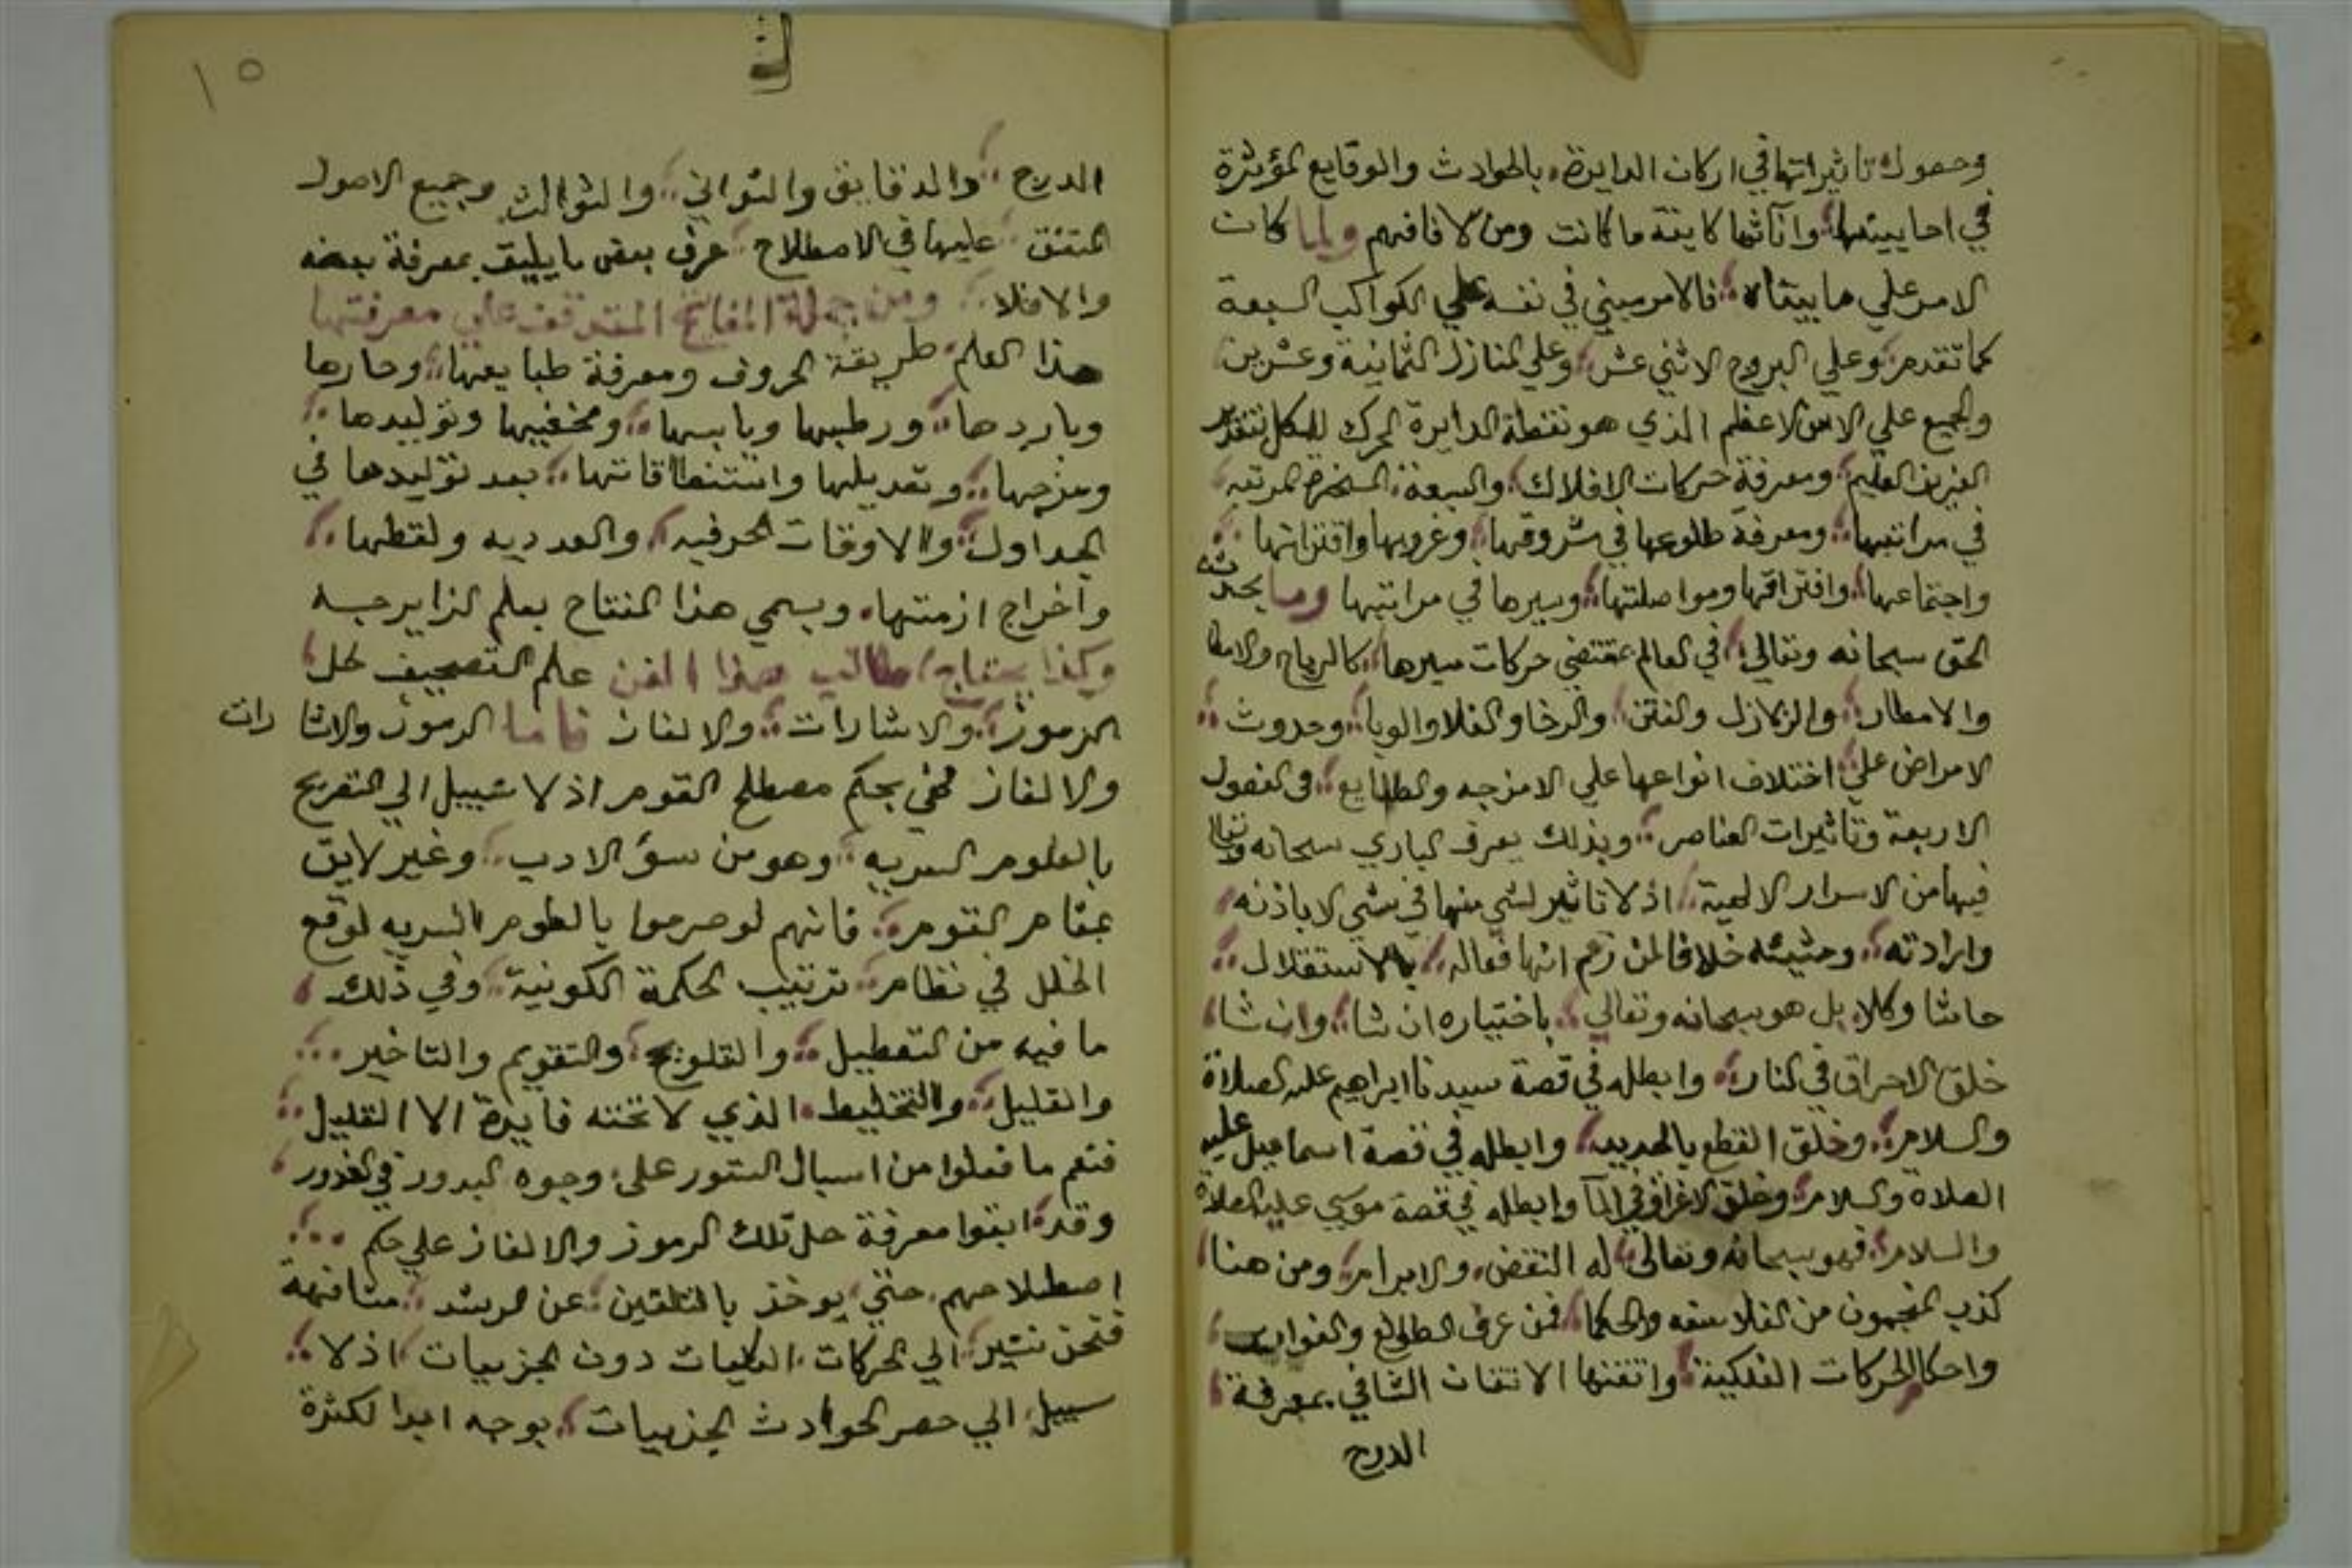 وحصول تاثيراتها في اركان الدايرة بالحوادث والوقايع المؤثرة
في احايينها وآناتها كاينة ما كانت ومن لا فافهم ولما كان
الامر علي ما بيناه فالامر مبني في نفسه علي الكواكب السبعة
كما تقدم وعلي البروج الاثني عشر وعلي المنازل الثمانية وعشرين
والجميع علي الاس الاعظم الذي هو نقطة الدايرة المحرك للكل بتقدير
العزيز العليم ومعرفة حركات الافلاك والسبعة المسخرة المرتبه
في مراتبها ومعرفة طلوعها في شروقها وغروبها واقتراناتها
واجتماعها وافتراقها ومواصلتها وسيرها في مراتبها وما يحدثه
الحق سبحانه وتعالي في العالم بمقتضي حركات سيرها كالرياح
والامطار والزلازل والفتن والرخا والغلا والوبا وحدوث
الامراض علي اختلاف انواعها علي الامزجه والطبايع في الفصول
الاربعة وتاثيرات العناصر وبذلك يعرف الباري سبحانه وتعالي
فيها من الاسرار الالهية اذ لا تاثير لشي منها في شي الا باذنه
وارادته ومشيئته خلافا لمن زعم انها فعاله بالاستقلال
حاشا وكلا بل هو سبحانه وتعالي باختياره ان شا وان شا
خلق الاحراق في النار وابطله في قصة سيدنا ابراهيم عليه الصلاة
والسلام وخلق القطع بالحديد وابطله في قصة اسماعيل عليه
الصلاة والسلام وخلق الاغراق في المآ وابطله في قصة موسي عليه الصلاة
والسلام فهو سبحانه وتعالي له النقض والابرام ومن هنا
كذب المنجمون من الفلاسفه والحكما فمن عرف الطوالع والغوارب
واحكام الحركات الفلكية واتقنها الاتقان الشافي بمعرفة
الدرج
١٥
الدرج والدقايق والثواني والثوالث وجميع الاصول
المتفق عليها في الاصطلاح عرف بعض ما يليق بمعرفة بعضه
والا فلا ومن جملة المفاتيح المتوقف علي معرفتها
هذا العلم طريقة الحروف ومعرفة طبايعها وحارها
وباردها ورطبها ويابسها وتوليدها
ومزجها وتعديلها واستنطاقاتها بعد توليدها في
الجداول والاوفاق الحرفيه والعدديه ولقطها
واخراج ازمتها ويسمي هذا المفتاح بعلم الزايرجه
وكذا مفتاح هذا الفن علم التصحيف لحل
الرموز والاشارات والالغاز فاما الرموز والاشا رات
والالغاز فهي بحكم مصطلح القوم اذ لا سبيل الي التصريح
بالعلوم السريه وهو من سؤ الادب وغير لايق
بمقام القوم فانهم لو صرحوا بالعلوم السريه لوقع
الخلل في نظام ترتيب الحكمة الكونية وفي ذلك
ما فيه من التعطيل والتلويح والتقديم والتاخير
والتقليل والتخليط الذي لا تحته فايدة الا القليل
فنعم ما فعلوا من اسبال الستور علي وجوه البدور في الخدور
وقد ابقوا معرفة حل تلك الرموز والالغاز علي حكم
اصطلاحهم حتي يوخذ بالتلقين عن المرشد مشافهة
فنحن نشير الي الحركات الكليات دون الجزييات اذ لا
سبيل الي حصر الحوادث الجزييات بوجه ابدا لكثرة